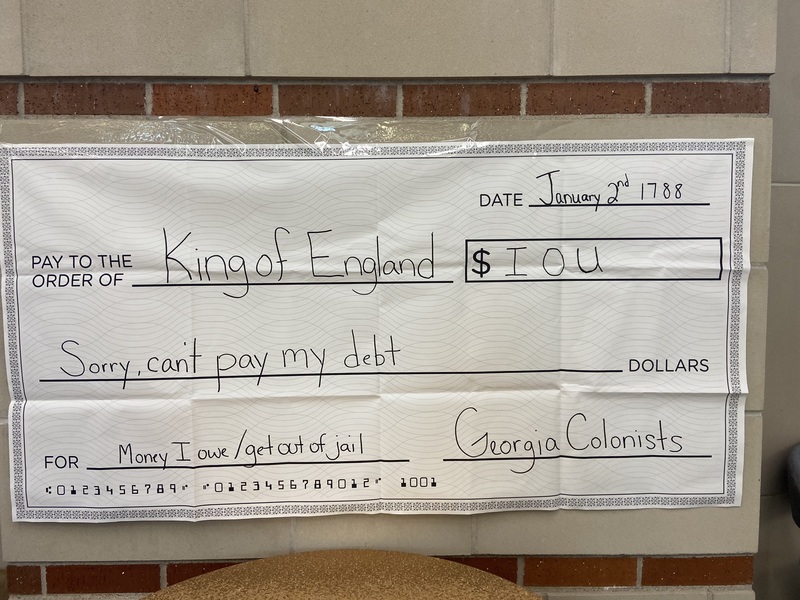 DATE January 2nd 1788
PAY TO THE
ORDER OF King of England $ IOU
Sorry, can't pay my debt DOLLARS
FOR Money I owe/get out of jail Georgia Colonists
⑆0123456789⑆ ⑈0123456789012⑈ 1001